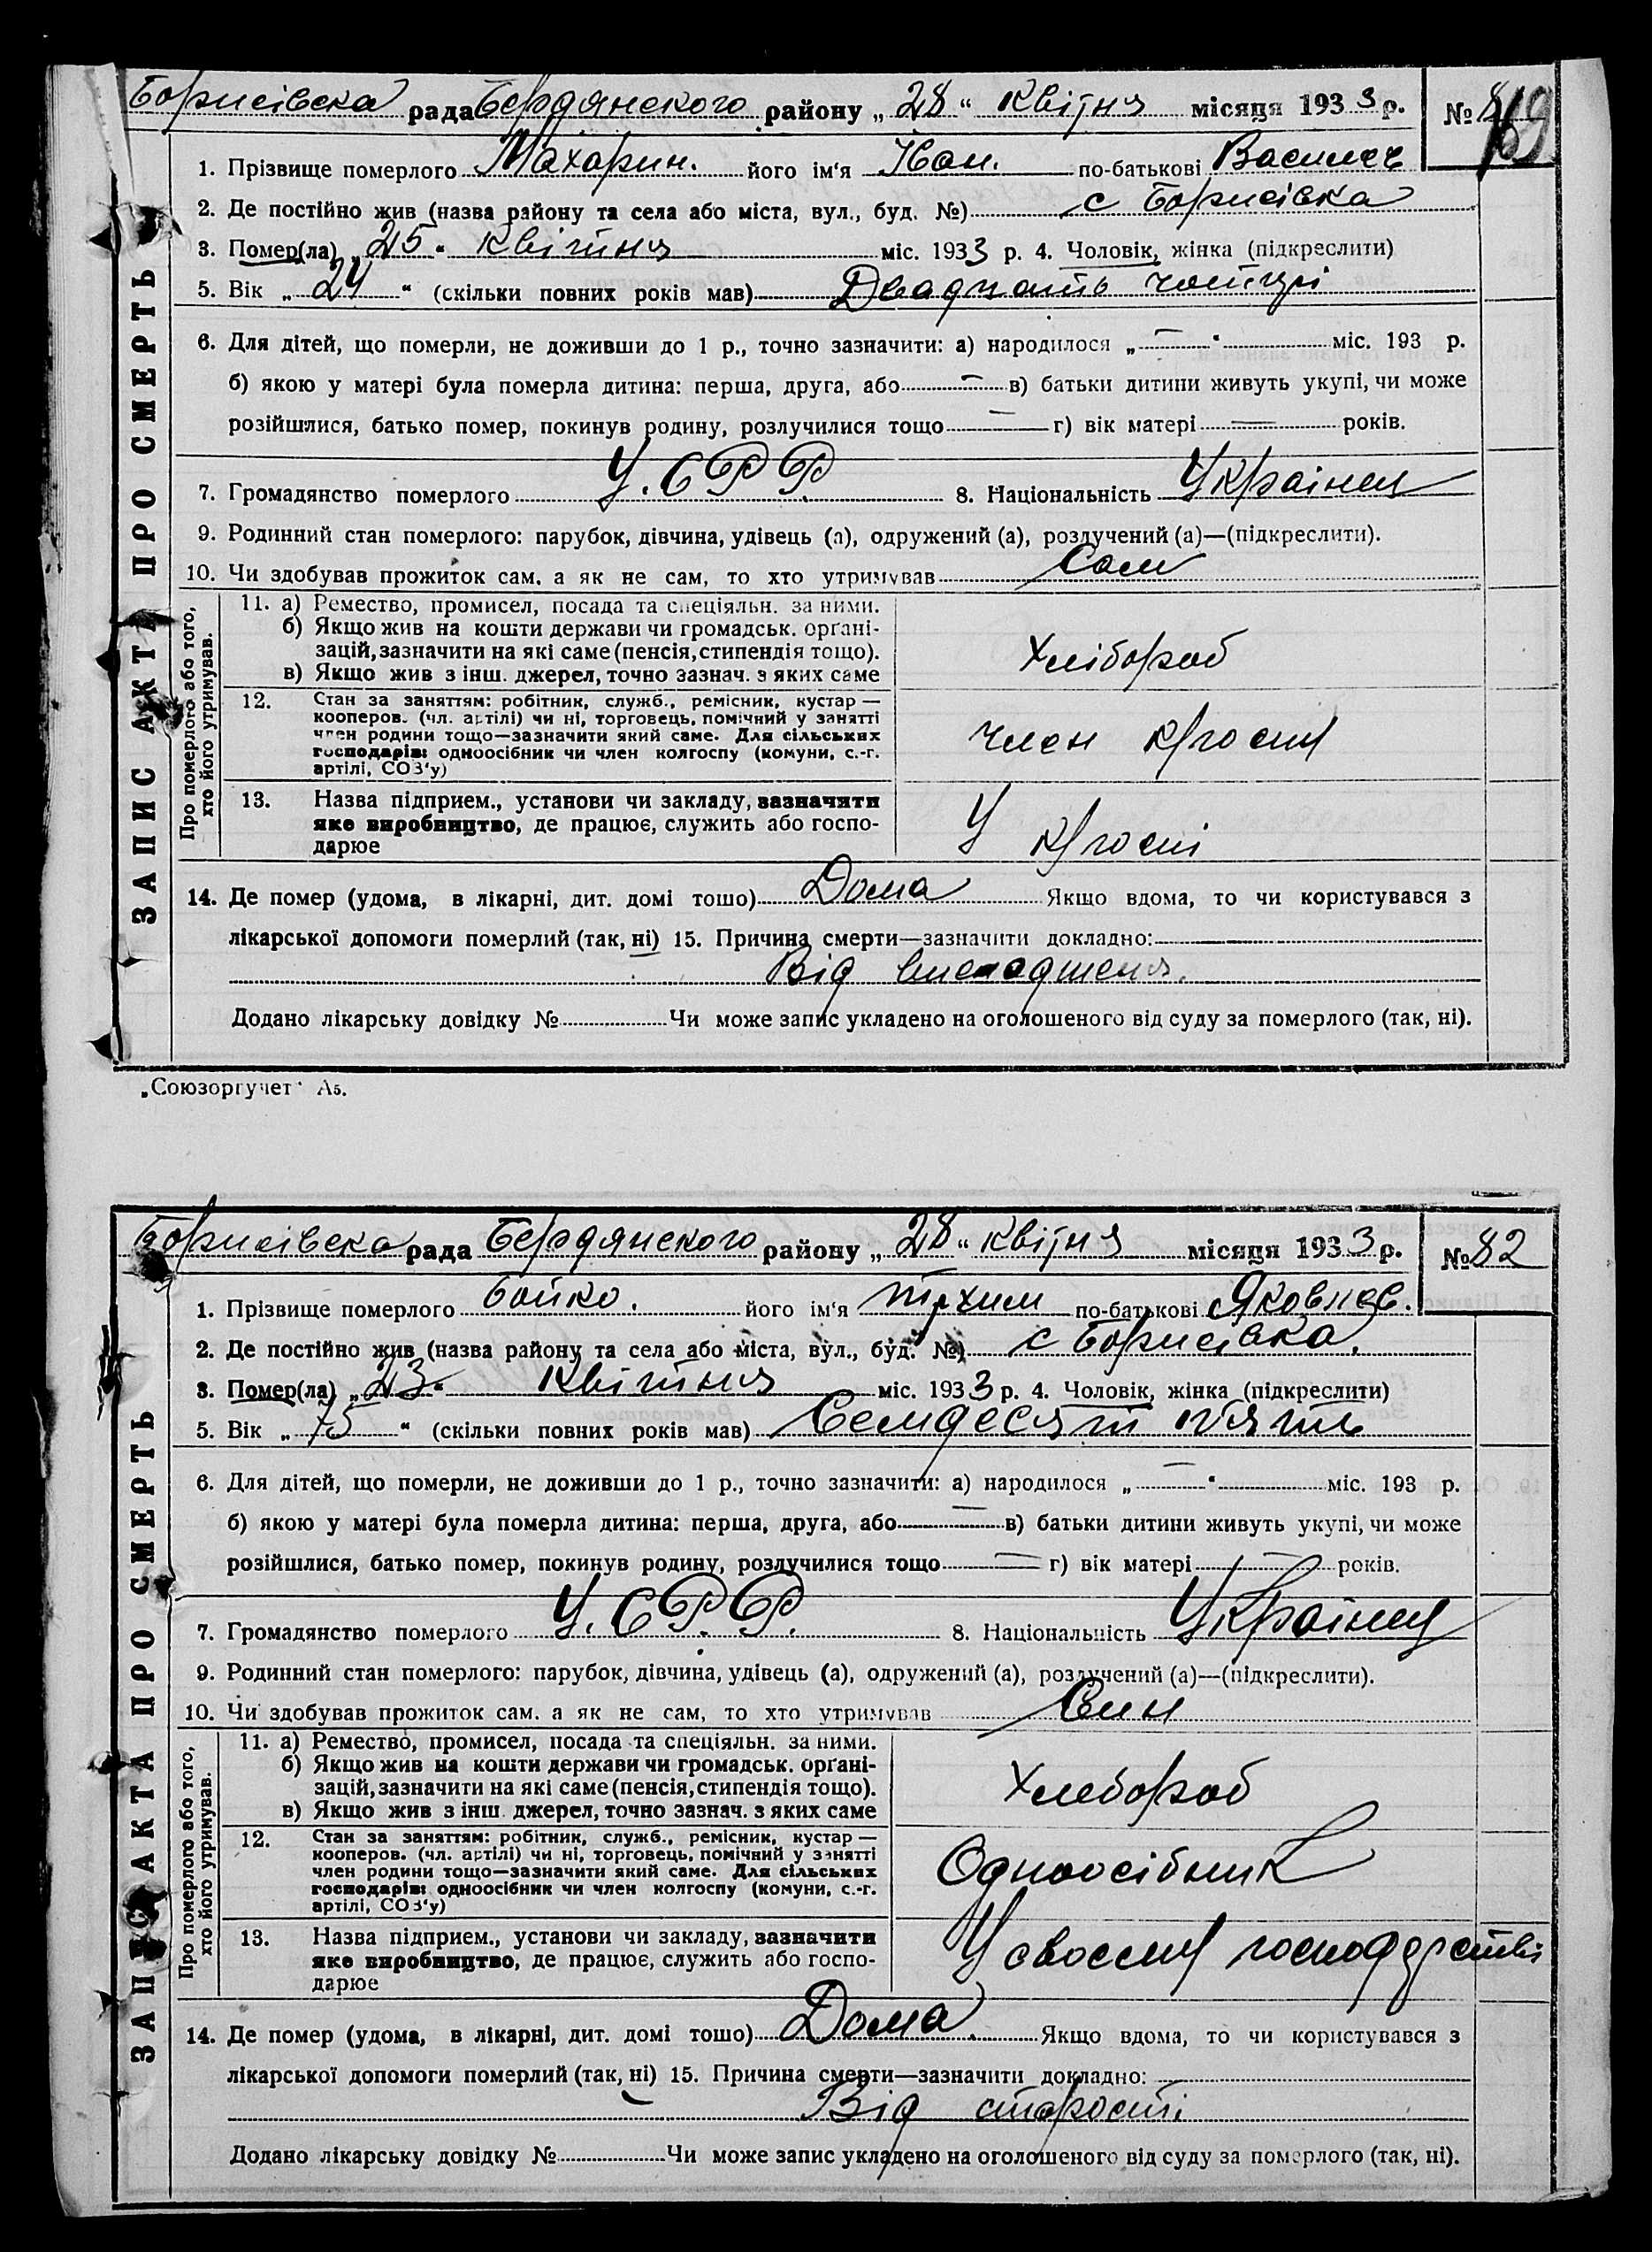 ЗАПИС АКТА ПРО СМЕРТЬ
Борисівска рада Бердянского району „28“ Квітня місяця 1933 р. №
1. Прізвище померлого Махарин. його ім'я Іван. по-батькові Василев
2. Де постійно жив (назва району та села або міста, вул., буд. №) с Борисівка
3. Помер(ла) „25“ Квітня міс. 1933 р. 4. Чоловік, жінка (підкреслити)
5. Вік „24“ (скільки повних років мав) Двадцать чотирі
6. Для дітей, що померли, не доживши до 1 р., точно зазначити: а) народилося „—“ міс. 193 р.
б) якою у матері була померла дитина: перша, друга, або — в) батьки дитини живуть укупі, чи може
розійшлися, батько помер, покинув родину, розлучилися тощо — г) вік матері — років.
7. Громадянство померлого У.СРР. 8. Національність Украінец
9. Родинний стан померлого: парубок, дівчина, удівець (а), одружений (а), розлучений (а)—(підкреслити).
10. Чи здобував прожиток сам. а як не сам, то хто утримував Сам
Про померлого або того, хто його утримував.
11. а) Ремество, промисел, посада та спеціяльн. за ними.
б) Якщо жив на кошти держави чи громадськ. орґані-
зацій, зазначити на які саме (пенсія, стипендія тощо).
в) Якщо жив з інш. джерел, точно зазнач. з яких саме
Хлібороб
12. Стан за заняттям: робітник, служб., ремісник, кустар —
кооперов. (чл. артілі) чи ні, торговець, помічний у занятті
член родини тощо—зазначити який саме. Для сільських
господарів: одноосібник чи член колгоспу (комуни, с.-г.
артілі, СОЗ'у)
член к/госпу
13. Назва підприєм., установи чи закладу, зазначити
яке виробництво, де працює, служить або госпо-
дарює
У к/госпі
14. Де помер (удома, в лікарні, дит. домі тощо) Дома Якщо вдома, то чи користувався з
лікарської допомоги померлий (так, ні) 15. Причина смерти—зазначити докладно:
Від
Додано лікарську довідку № Чи може запис укладено на оголошеного від суду за померлого (так, ні).
„Союзоргучет“ А5.
ЗАПИС АКТА ПРО СМЕРТЬ
Борисівска рада Бердянского району „28“ Квітня місяця 1933 р. № 82
1. Прізвище померлого Бойко. його ім'я Трхим по-батькові Яковлев.
2. Де постійно жив (назва району та села або міста, вул., буд. №) с Борисівка.
3. Помер(ла) „23“ Квітня міс. 1933 р. 4. Чоловік, жінка (підкреслити)
5. Вік „75“ (скільки повних років мав) Семдесят пять
6. Для дітей, що померли, не доживши до 1 р., точно зазначити: а) народилося „—“ міс. 193 р.
б) якою у матері була померла дитина: перша, друга, або — в) батьки дитини живуть укупі, чи може
розійшлися, батько помер, покинув родину, розлучилися тощо — г) вік матері — років.
7. Громадянство померлого У.СР.Р. 8. Національність Украінец
9. Родинний стан померлого: парубок, дівчина, удівець (а), одружений (а), розлучений (а)—(підкреслити).
10. Чи здобував прожиток сам. а як не сам, то хто утримував Син
Про померлого або того, хто його утримував.
11. а) Ремество, промисел, посада та спеціяльн. за ними.
б) Якщо жив на кошти держави чи громадськ. орґані-
зацій, зазначити на які саме (пенсія, стипендія тощо).
в) Якщо жив з інш. джерел, точно зазнач. з яких саме
Хлебороб
12. Стан за заняттям: робітник, служб., ремісник, кустар —
кооперов. (чл. артілі) чи ні, торговець, помічний у занятті
член родини тощо—зазначити який саме. Для сільських
господарів: одноосібник чи член колгоспу (комуни, с.-г.
артілі, СОЗ'у)
Одноосібник
13. Назва підприєм., установи чи закладу, зазначити
яке виробництво, де працює, служить або госпо-
дарює
У своєму господарстві
14. Де помер (удома, в лікарні, дит. домі тощо) Дома. Якщо вдома, то чи користувався з
лікарської допомоги померлий (так, ні) 15. Причина смерти—зазначити докладно:
Від старости
Додано лікарську довідку № Чи може запис укладено на оголошеного від суду за померлого (так, ні).